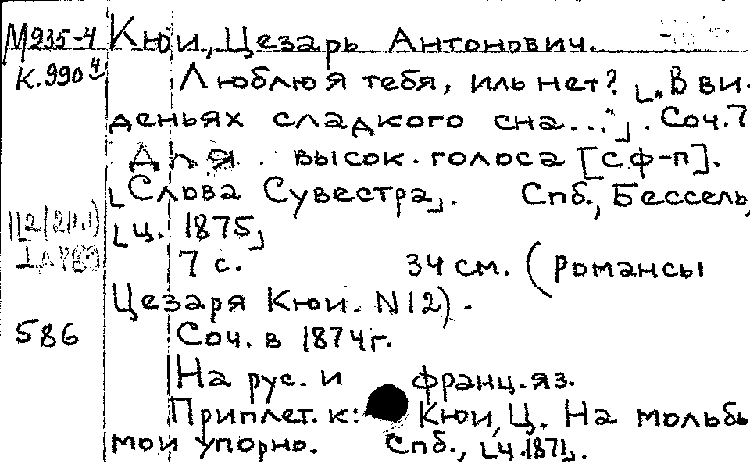 М935-4 Кюи, Цезарь Антонович.
К.990⁴ Люблю я тебя, иль нет? [„В ви-
деньях сладкого сна..."]. Соч.7
Для высок. голоса [с ф-п].
[Слова Сувестра]. Спб., Бессель,
[ц. 1875]
7 с. 34 см. (Романсы
Цезаря Кюи. N12).
586 Соч. в 1874г.
На рус. и франц. яз.
Приплет. к: Кюи, Ц. На мольбы
мои упорно. Спб., [ц.1871].